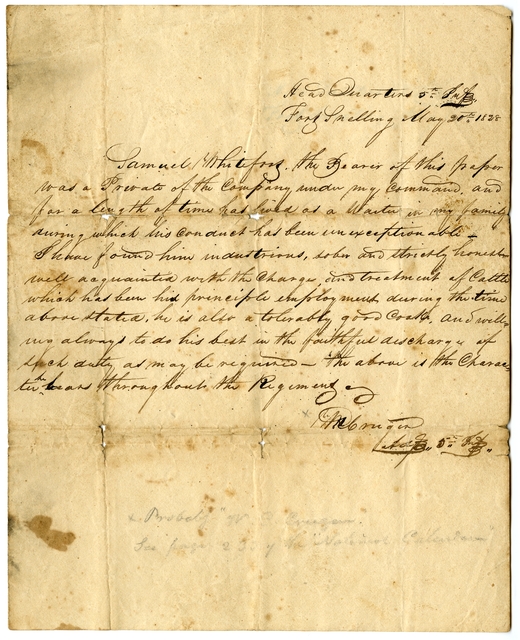 Head Quarters 5th Inf.
Fort Snelling May 20th 1828
Samuel Whiteford, the Bearer of this paper
was a Private of the Company under my Command, and
for a length of time has lived as a Waiter in my family
during which his conduct has been unexceptionable –
I have found him industrious, sober and strictly honest –
well acquainted with the Charge and treatment of Cattle
which has been his principle employment during the time
above stated, he is also a tolerably good Cook, and willi
ng always to do his best in the faithful discharge of
such duty as may be required – the above is the Charac-
ter he bears throughout the Regiment
Cruger
Adj. 5th Inf.
x Probably "W. Cruger
See page 230 of the "National Calendar"